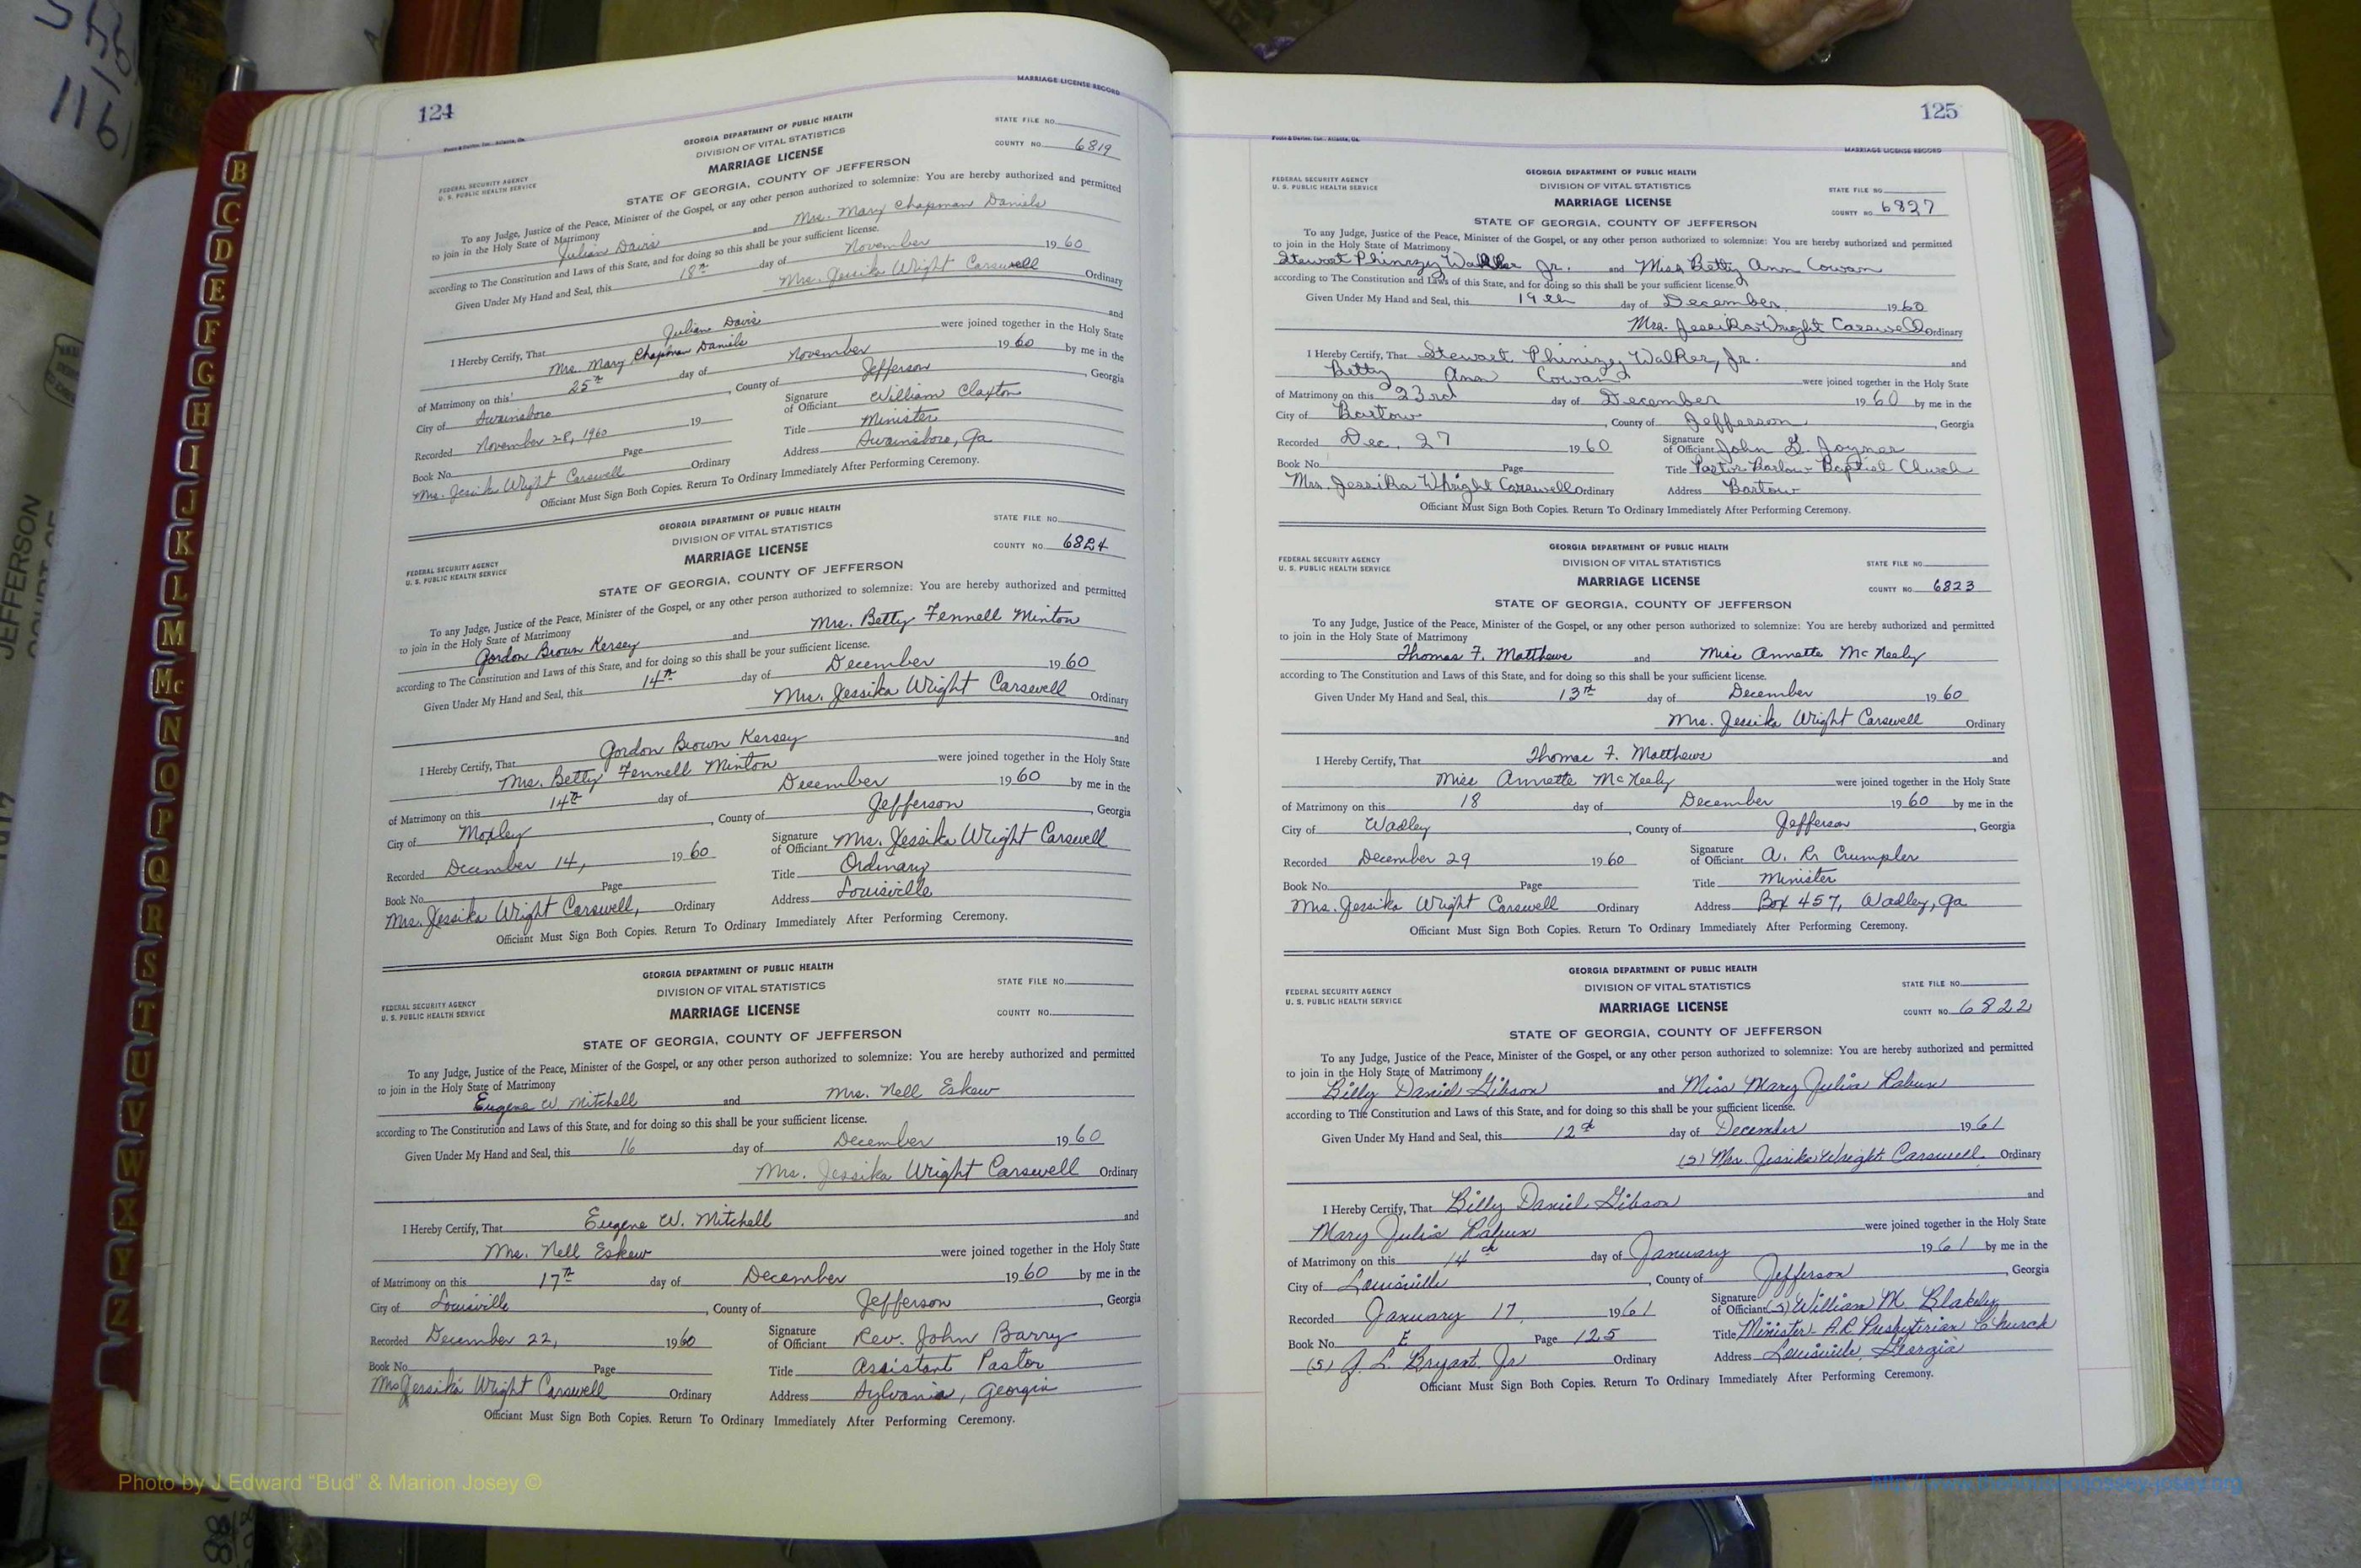 124
MARRIAGE LICENSE RECORD
Foote & Davies, Inc., Atlanta, Ga.
GEORGIA DEPARTMENT OF PUBLIC HEALTH
DIVISION OF VITAL STATISTICS
MARRIAGE LICENSE
STATE FILE NO.
COUNTY NO. 6819
FEDERAL SECURITY AGENCY
U. S. PUBLIC HEALTH SERVICE
STATE OF GEORGIA, COUNTY OF JEFFERSON
To any Judge, Justice of the Peace, Minister of the Gospel, or any other person authorized to solemnize: You are hereby authorized and permitted
to join in the Holy State of Matrimony
Julian Davis and Mrs. Mary Chapman Daniels
according to The Constitution and Laws of this State, and for doing so this shall be your sufficient license.
Given Under My Hand and Seal, this 18th day of November 1960
Mrs. Jessika Wright Carswell Ordinary
I Hereby Certify, That Julian Davis and
Mrs. Mary Chapman Daniels were joined together in the Holy State
of Matrimony on this 25th day of November 1960 by me in the
City of Swainsboro, County of Jefferson, Georgia
Recorded November 28, 1960 19 Signature of Officiant William Claxton
Book No. Page Title Minister
Mrs. Jessika Wright Carswell Ordinary Address Swainsboro, Ga
Officiant Must Sign Both Copies. Return To Ordinary Immediately After Performing Ceremony.
GEORGIA DEPARTMENT OF PUBLIC HEALTH
DIVISION OF VITAL STATISTICS
MARRIAGE LICENSE
STATE FILE NO.
COUNTY NO. 6824
FEDERAL SECURITY AGENCY
U. S. PUBLIC HEALTH SERVICE
STATE OF GEORGIA, COUNTY OF JEFFERSON
To any Judge, Justice of the Peace, Minister of the Gospel, or any other person authorized to solemnize: You are hereby authorized and permitted
to join in the Holy State of Matrimony
Gordon Brown Kersey and Mrs. Betty Fennell Minton
according to The Constitution and Laws of this State, and for doing so this shall be your sufficient license.
Given Under My Hand and Seal, this 14th day of December 1960
Mrs. Jessika Wright Carswell Ordinary
I Hereby Certify, That Gordon Brown Kersey and
Mrs. Betty Fennell Minton were joined together in the Holy State
of Matrimony on this 14th day of December 1960 by me in the
City of Moxley, County of Jefferson, Georgia
Recorded December 14, 1960 Signature of Officiant Mrs. Jessika Wright Carswell
Book No. Page Title Ordinary
Mrs. Jessika Wright Carswell, Ordinary Address Louisville
Officiant Must Sign Both Copies. Return To Ordinary Immediately After Performing Ceremony.
GEORGIA DEPARTMENT OF PUBLIC HEALTH
DIVISION OF VITAL STATISTICS
MARRIAGE LICENSE
STATE FILE NO.
COUNTY NO.
FEDERAL SECURITY AGENCY
U. S. PUBLIC HEALTH SERVICE
STATE OF GEORGIA, COUNTY OF JEFFERSON
To any Judge, Justice of the Peace, Minister of the Gospel, or any other person authorized to solemnize: You are hereby authorized and permitted
to join in the Holy State of Matrimony
Eugene W Mitchell and Mrs. Nell Eskew
according to The Constitution and Laws of this State, and for doing so this shall be your sufficient license.
Given Under My Hand and Seal, this 16 day of December 1960
Mrs. Jessika Wright Carswell Ordinary
I Hereby Certify, That Eugene W. Mitchell and
Mrs. Nell Eskew were joined together in the Holy State
of Matrimony on this 17th day of December 1960 by me in the
City of Louisville, County of Jefferson, Georgia
Recorded December 22, 1960 Signature of Officiant Rev. John Barry
Book No. Page Title Assistant Pastor
Mrs Jessika Wright Carswell Ordinary Address Sylvania, Georgia
Officiant Must Sign Both Copies. Return To Ordinary Immediately After Performing Ceremony.
125
Foote & Davies, Inc., Atlanta, Ga.
MARRIAGE LICENSE RECORD
GEORGIA DEPARTMENT OF PUBLIC HEALTH
DIVISION OF VITAL STATISTICS
MARRIAGE LICENSE
STATE FILE NO.
COUNTY NO. 6827
FEDERAL SECURITY AGENCY
U. S. PUBLIC HEALTH SERVICE
STATE OF GEORGIA, COUNTY OF JEFFERSON
To any Judge, Justice of the Peace, Minister of the Gospel, or any other person authorized to solemnize: You are hereby authorized and permitted
to join in the Holy State of Matrimony
Stewart Phinizy Walker Jr. and Miss Betty Ann Cowan
according to the Constitution and Laws of this State, and for doing so this shall be your sufficient license.
Given Under My Hand and Seal, this 19th day of December 1960
Mrs. Jessika Wright Carswell Ordinary
I Hereby Certify, That Stewart Phinizy Walker, Jr. and
Betty Ann Cowan were joined together in the Holy State
of Matrimony on this 23rd day of December 1960 by me in the
City of Bartow, County of Jefferson, Georgia
Recorded Dec. 27 1960 Signature of Officiant John G. Joyner
Book No. Page Title Pastor Bartow Baptist Church
Mrs. Jessika Whright Carswell Ordinary Address Bartow
Officiant Must Sign Both Copies. Return To Ordinary Immediately After Performing Ceremony.
GEORGIA DEPARTMENT OF PUBLIC HEALTH
DIVISION OF VITAL STATISTICS
MARRIAGE LICENSE
STATE FILE NO.
COUNTY NO. 6823
FEDERAL SECURITY AGENCY
U. S. PUBLIC HEALTH SERVICE
STATE OF GEORGIA, COUNTY OF JEFFERSON
To any Judge, Justice of the Peace, Minister of the Gospel, or any other person authorized to solemnize: You are hereby authorized and permitted
to join in the Holy State of Matrimony
Thomas F. Matthews and Miss Annette McNeely
according to The Constitution and Laws of this State, and for doing so this shall be your sufficient license.
Given Under My Hand and Seal, this 13th day of December 1960
Mrs. Jessika Wright Carswell Ordinary
I Hereby Certify, That Thomas F. Matthews and
Miss Annette McNeely were joined together in the Holy State
of Matrimony on this 18 day of December 1960 by me in the
City of Wadley, County of Jefferson, Georgia
Recorded December 29 1960 Signature of Officiant A. R. Crumpler
Book No. Page Title Minister
Mrs. Jessika Wright Carswell Ordinary Address Box 457, Wadley, Ga
Officiant Must Sign Both Copies. Return To Ordinary Immediately After Performing Ceremony.
GEORGIA DEPARTMENT OF PUBLIC HEALTH
DIVISION OF VITAL STATISTICS
MARRIAGE LICENSE
STATE FILE NO.
COUNTY NO. 6822
FEDERAL SECURITY AGENCY
U. S. PUBLIC HEALTH SERVICE
STATE OF GEORGIA, COUNTY OF JEFFERSON
To any Judge, Justice of the Peace, Minister of the Gospel, or any other person authorized to solemnize: You are hereby authorized and permitted
to join in the Holy State of Matrimony
Billy Daniel Gibson and Miss Mary Julia Rabun
according to The Constitution and Laws of this State, and for doing so this shall be your sufficient license.
Given Under My Hand and Seal, this 12th day of December 1961
(S) Mrs. Jessika Wright Carswell Ordinary
I Hereby Certify, That Billy Daniel Gibson and
Mary Julia Rabun were joined together in the Holy State
of Matrimony on this 14th day of January 1961 by me in the
City of Louisville, County of Jefferson, Georgia
Recorded January 17, 1961 Signature of Officiant (S) William M. Blakely
Book No. E Page 125 Title Minister - A.R. Presbyterian Church
(S) J. L. Bryant, Jr Ordinary Address Louisville, Georgia
Officiant Must Sign Both Copies. Return To Ordinary Immediately After Performing Ceremony.
B
C
D
E
F
G
H
I
J
K
L
M
Mc
N
O
P
Q
R
S
T
U
V
W
X
Y
Z
JEFFERSON
Photo by J Edward “Bud” & Marion Josey ©